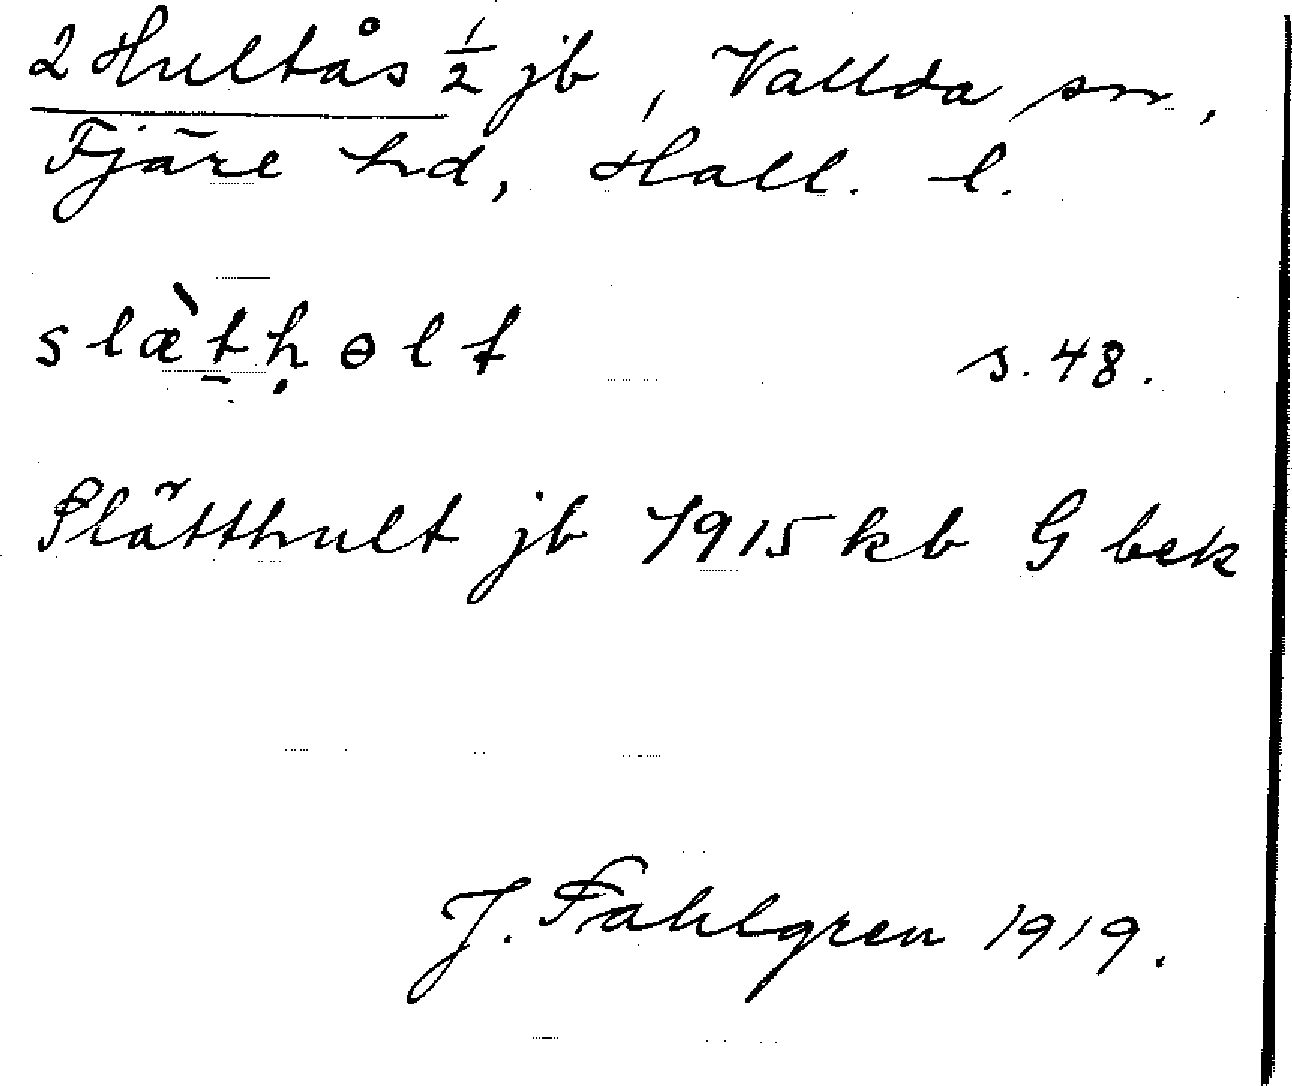 2 Hultås 1/2 jb, Vallda sn,
Fjäre hd, Hall. l.
slæ̀t̠ḥɵlt s. 48.
Slätthult jb 1915 kb G bek
J. Sahlgren 1919.